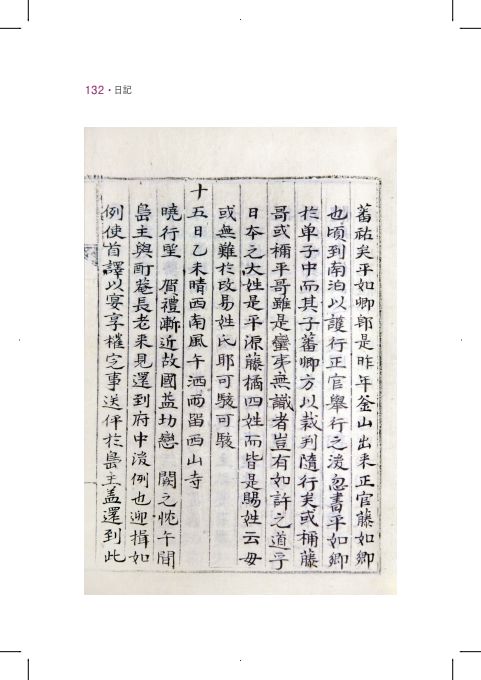 132 · 日記
蕃祐矣平如卿卽是昨年釜山出來正官藤如卿
也頃到南泊以護行正官舉行之後忽書平如卿
於单子中而其子蕃卿方以裁判隨行矣或稱藤
哥或稱平哥雖是蠻夷無識者豈有如許之道乎
日本之大姓是平源藤橘四姓而皆是賜姓云毋
或無難於改易姓氏耶可駭可駭
十五日乙未晴西南風午洒雨留西山寺
曉行望 賀禮漸近故國益切戀 闕之忱午間
島主與酊菴長老来見還到府中後例也迎揖如
例使首譯以宴享權定事送伻於島主盖還到此